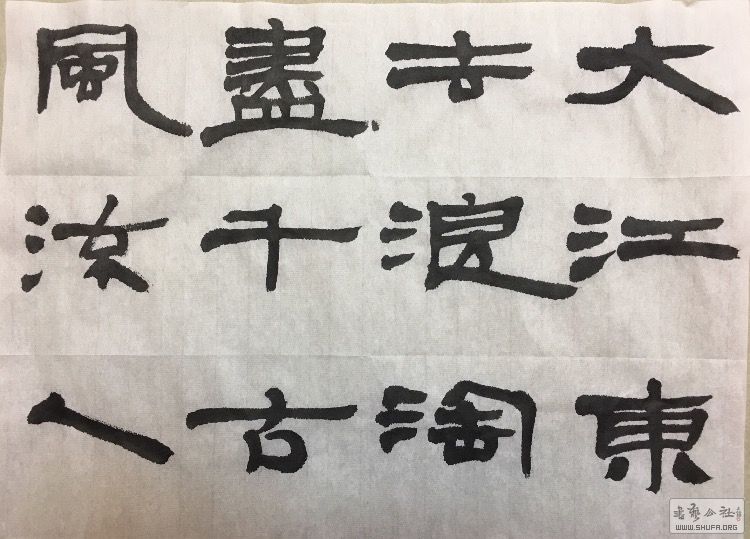 大江東
去浪淘
盡千古
風流人
书艺公社
WWW.SHUFA.ORG